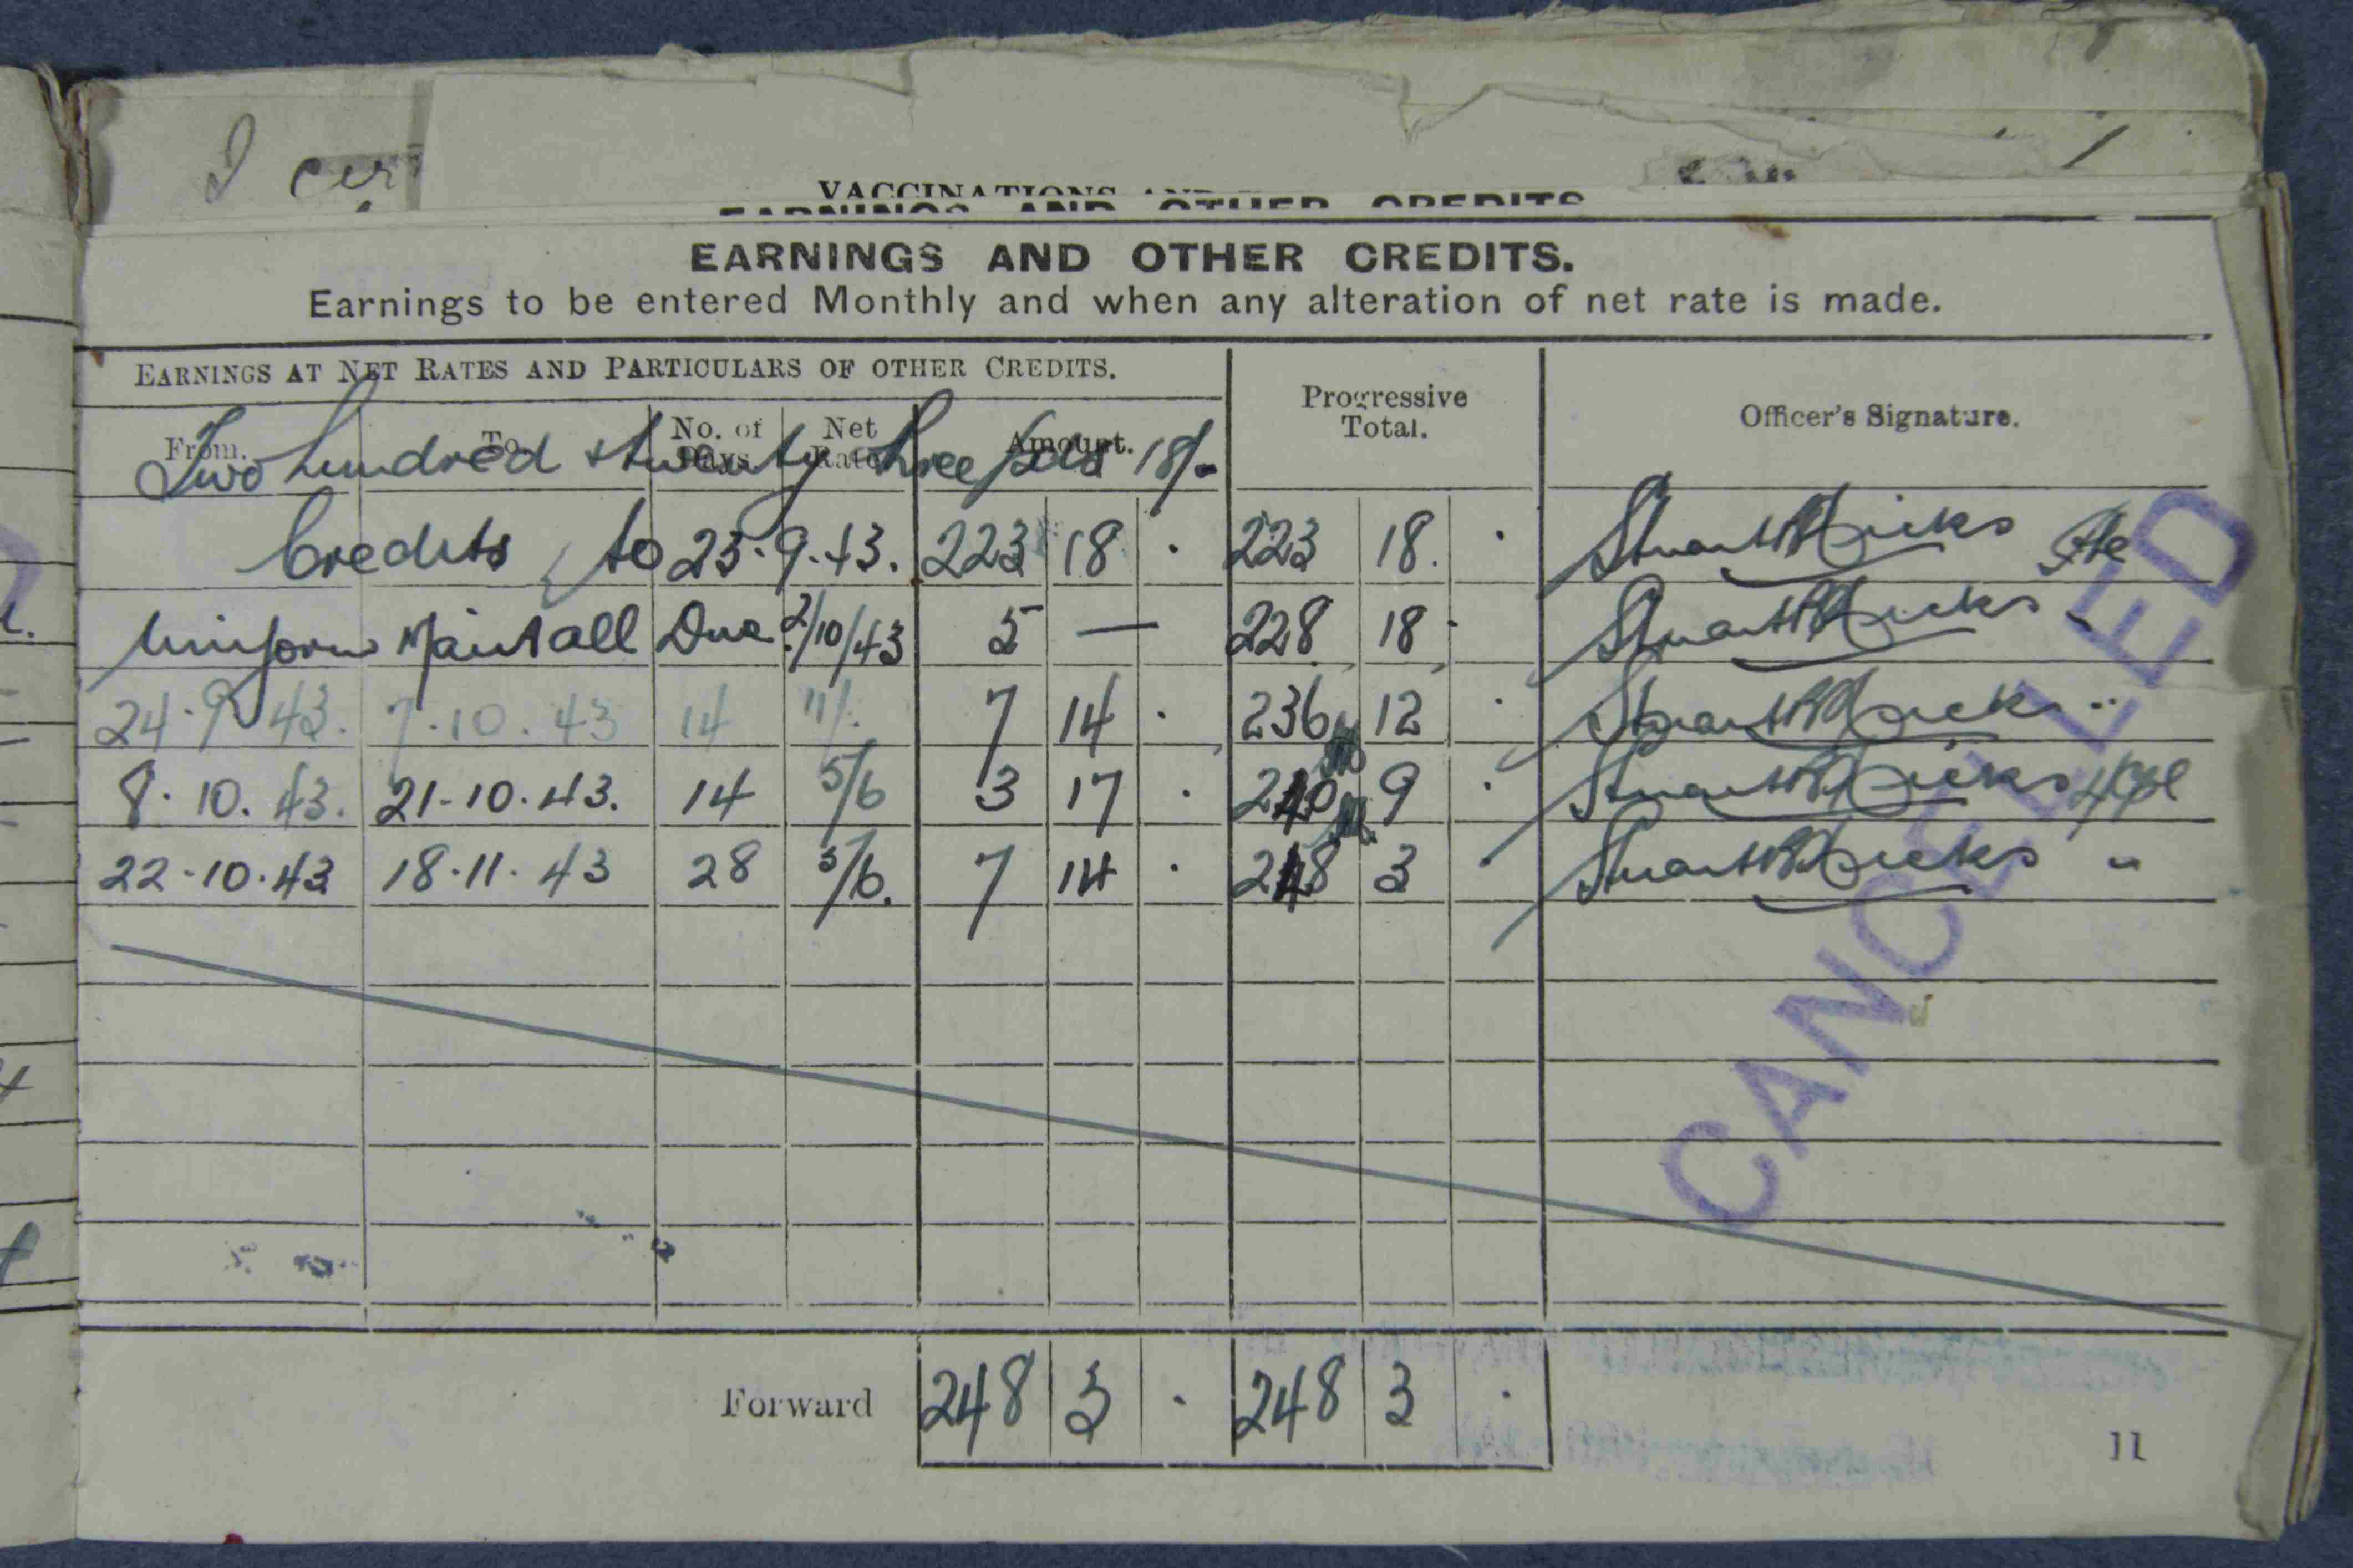 I cer
VACCINATIONS AND
EARNINGS AND OTHER CREDITS
EARNINGS AND OTHER CREDITS.
Earnings to be entered Monthly and when any alteration of net rate is made.
EARNINGS AT NET RATES AND PARTICULARS OF OTHER CREDITS. Progressive Total. Officer's Signature.
From. To No. of Days Net Rate Amount.
Two hundred & twenty three pds 18/-
Credits to 23.9.43. 223 18 · 223 18. · Stuart Hicks
Uniform Maint all Due 2/10/43 5 — 228 18 · Stuart Hicks "
24.9.43. 7.10.43 14 11/. 7 14 · 236 12 · Stuart Hicks "
8.10.43. 21-10.43. 14 5/6 3 17 · 240 9 · Stuart Hicks
22.10.43 18.11.43 28 5/6. 7 14 · 248 3 · Stuart Hicks "
CANCELLED
Forward 248 3 · 248 3 ·
11